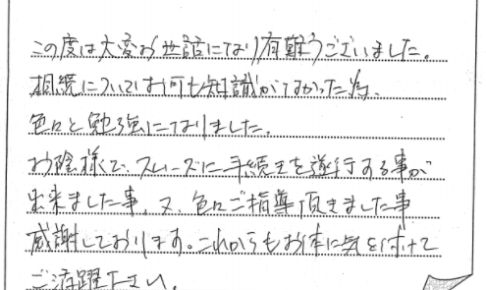 この度は大変お世話になり有難うございました。
相続については何も知識がなかった為、
色々と勉強になりました。
お陰様で、スムーズに手続きを遂行する事が
出来ました事、又、色々ご指導頂きました事
感謝しております。これからもお体に気を付けて
ご活躍下さい。